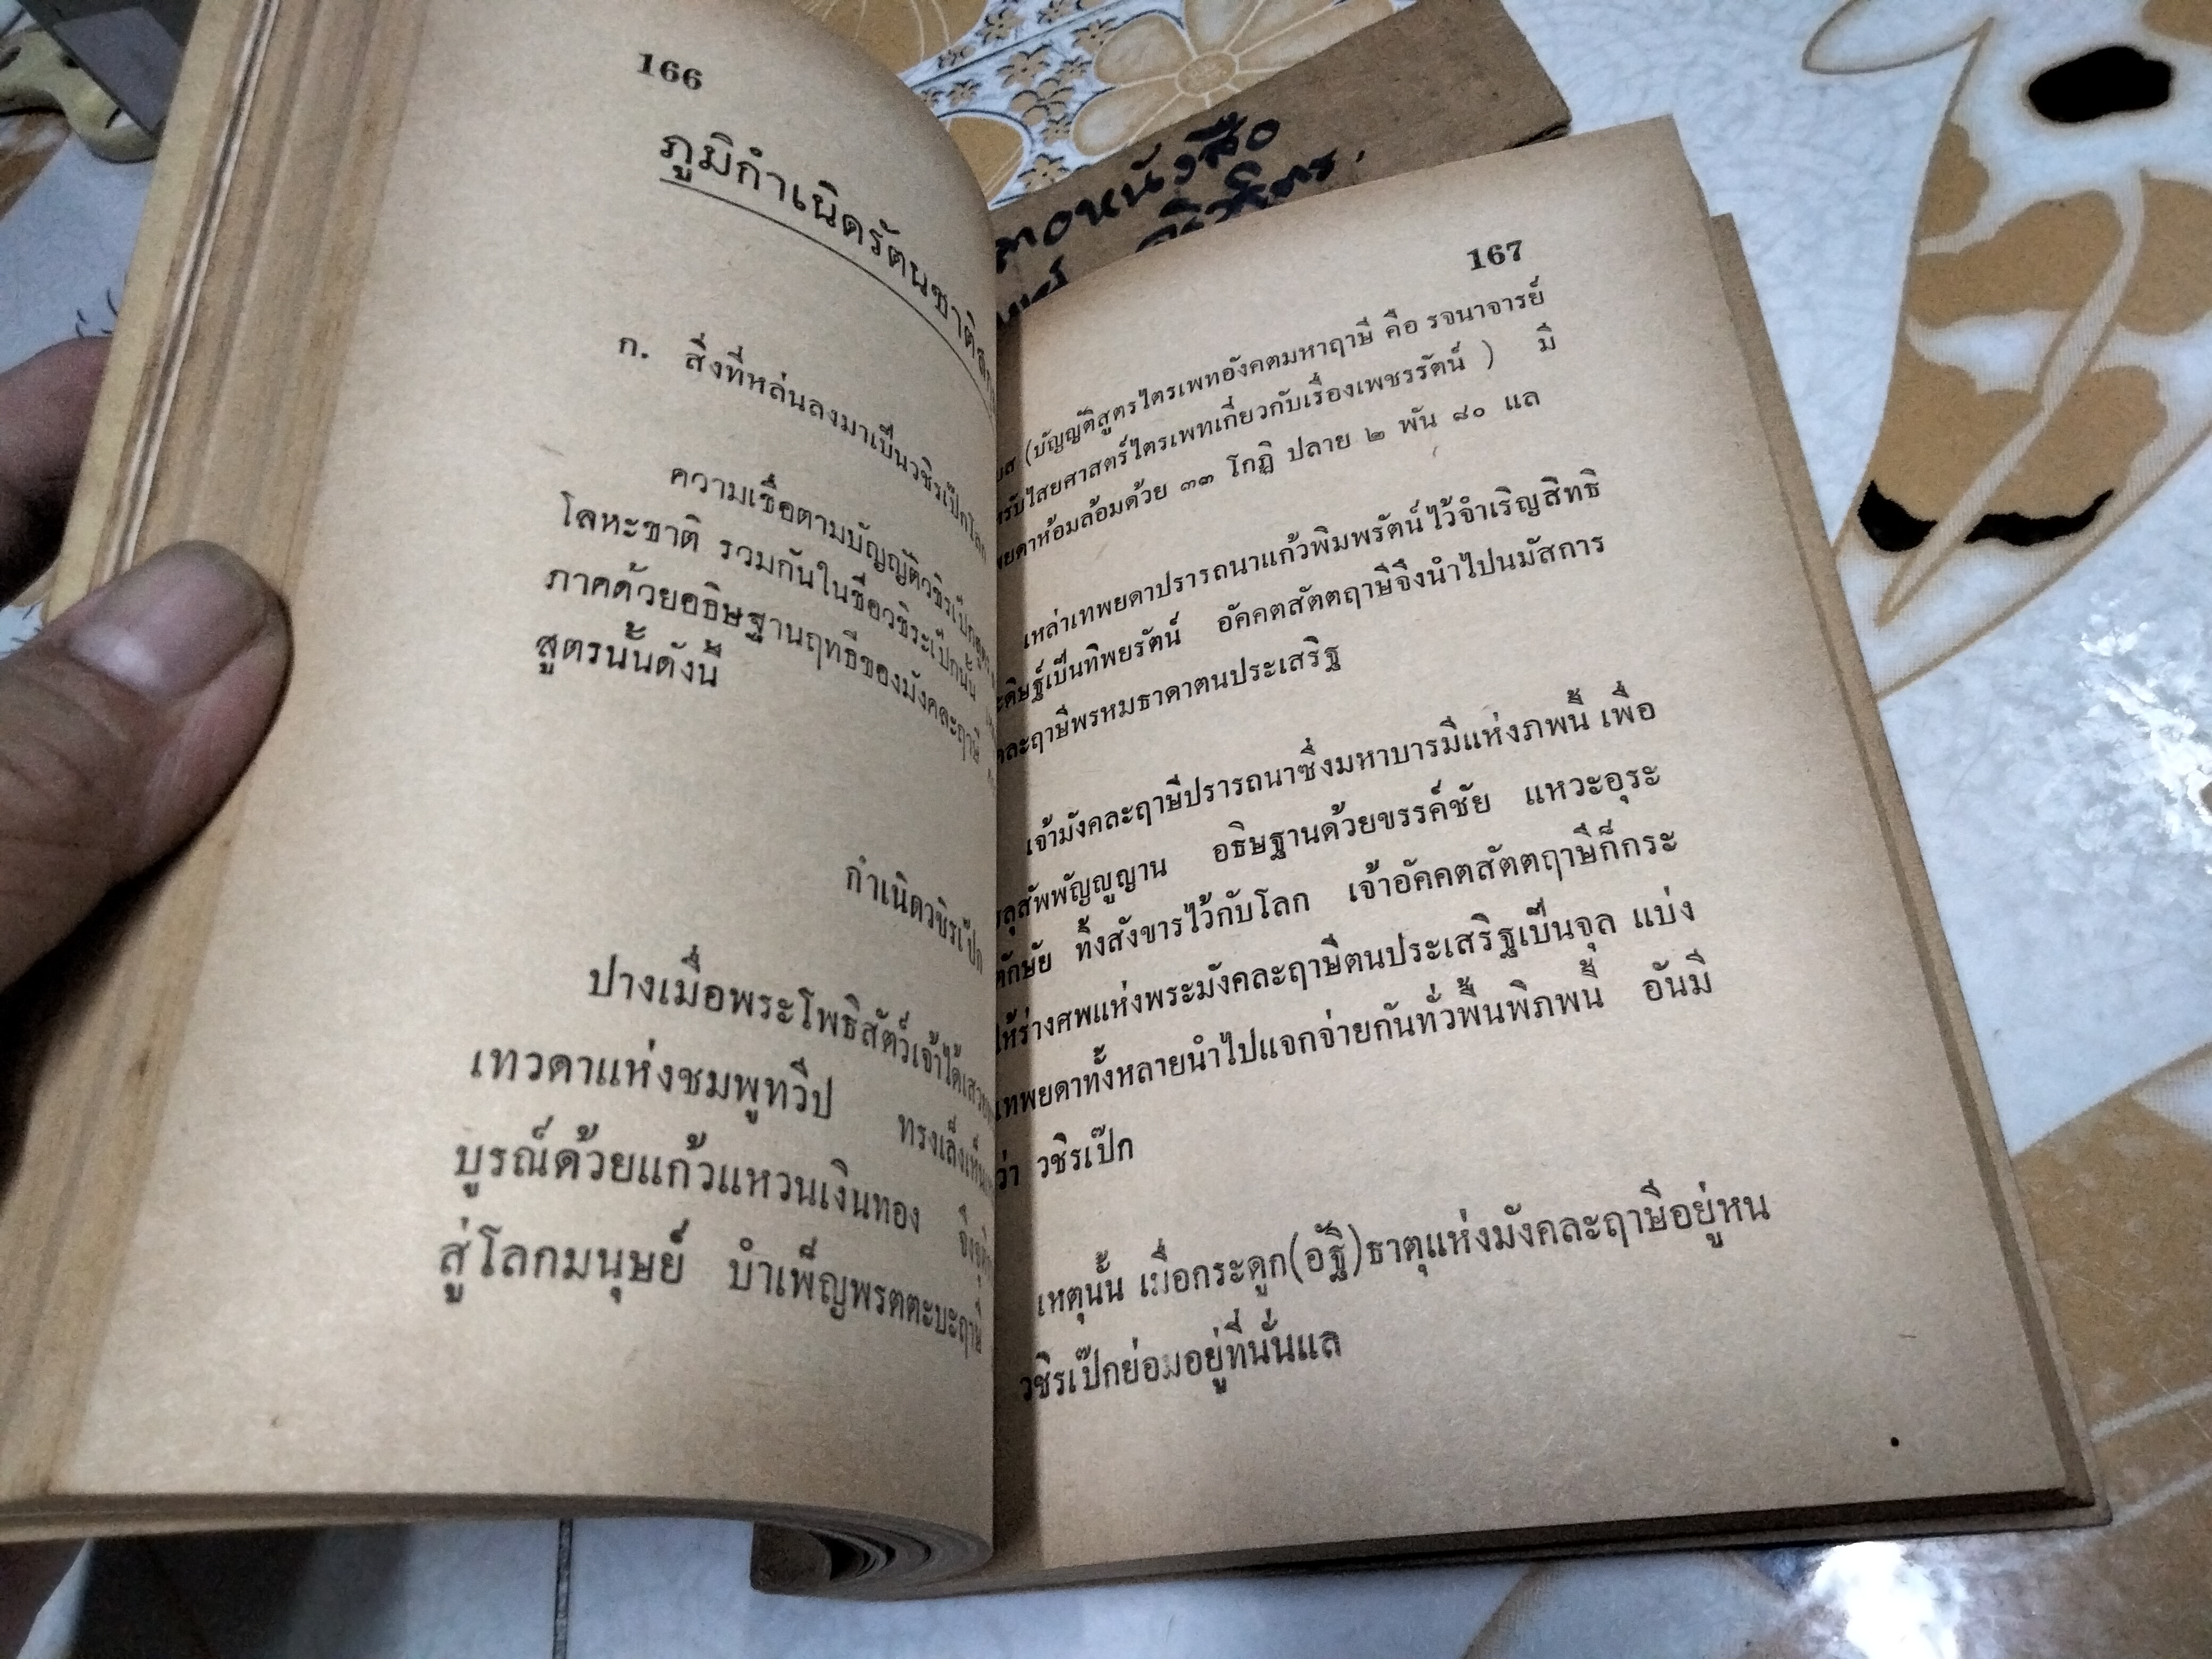 166
ภูมิกำเนิดรัตนชาติ
ก. สิ่งที่หล่นลงมาเป็นวชิรเป๊กโลก
ความเชื่อตามบัญญัติวชิรเป๊ก
โลหะชาติ รวมกันในชื่อวชิระเป๊กนั้น
ภาคด้วยอธิษฐานฤทธิ์ของมังคละฤาษี
สูตรนั้นดังนี้
กำเนิดวชิรเป๊ก
ปางเมื่อพระโพธิสัตว์เจ้าได้เสวย
เทวดาแห่งชมพูทวีป ทรงเล็งเห็น
บูรณ์ด้วยแก้วแหวนเงินทอง จึงจุติ
สู่โลกมนุษย์ บำเพ็ญพรตตะบะฤาษี
หนังสือ
167
(บัญญัติสูตรไตรเพทอังคตมหาฤาษี คือ รจนาจารย์
รับไสยศาสตร์ไตรเพทเกี่ยวกับเรื่องเพชรรัตน์ ) มี
พยดาห้อมล้อมด้วย ๓๓ โกฏิ ปลาย ๒ พัน ๘๐ แล
เหล่าเทพยดาปรารถนาแก้วพิมพรัตน์ไว้จำเริญสิทธิ
ะดิษฐ์เป็นทิพยรัตน์ อัคคตสัตตฤาษีจึงนำไปนมัสการ
คละฤาษีพรหมธาดาตนประเสริฐ
เจ้ามังคละฤาษีปรารถนาซึ่งมหาบารมีแห่งภพนี้ เพื่อ
ลุสัพพัญญูญาน อธิษฐานด้วยขรรค์ชัย แหวะอุระ
ตักษัย ทิ้งสังขารไว้กับโลก เจ้าอัคคตสัตตฤาษีก็กระ
ให้ร่างศพแห่งพระมังคละฤาษีตนประเสริฐเป็นจุล แบ่ง
เทพยดาทั้งหลายนำไปแจกจ่ายกันทั่วพื้นพิภพนี้ อันมี
ว่า วชิรเป๊ก
เหตุนั้น เมื่อกระดูก(อัฐิ)ธาตุแห่งมังคละฤาษีอยู่หน
วชิรเป๊กย่อมอยู่ที่นั่นแล